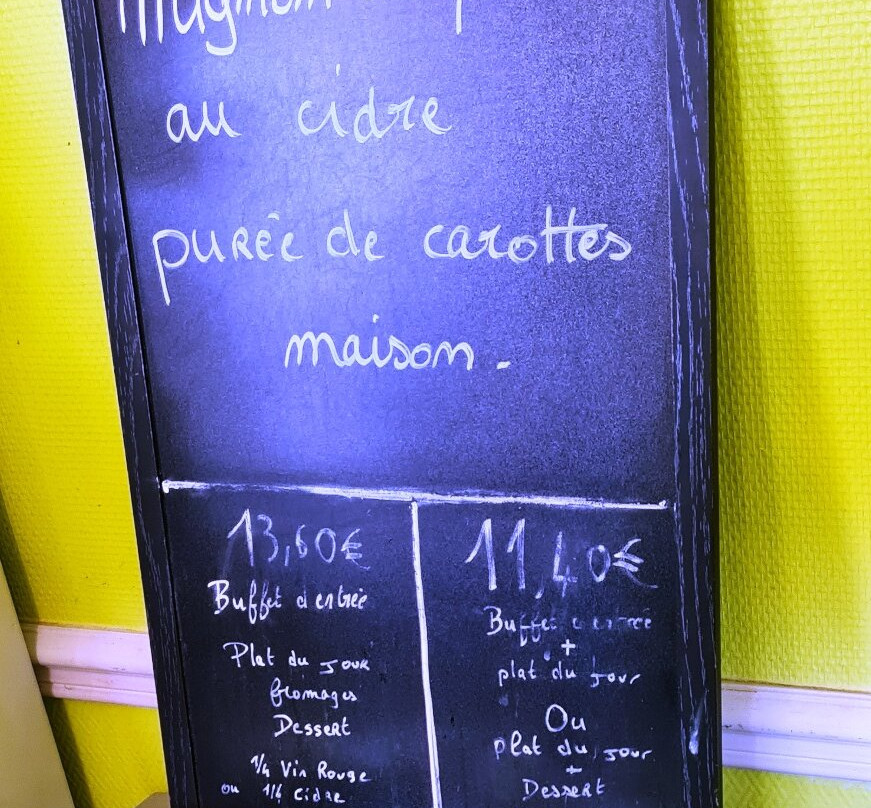 au cidre
purée de carottes
maison.
13,60€
Buffet d'entrée
Plat du jour
fromages
Dessert
1/4 Vin Rouge
ou 1/4 Cidre
11,40€
Buffet d'entrée
+
plat du jour
Ou
plat du jour
+
Dessert